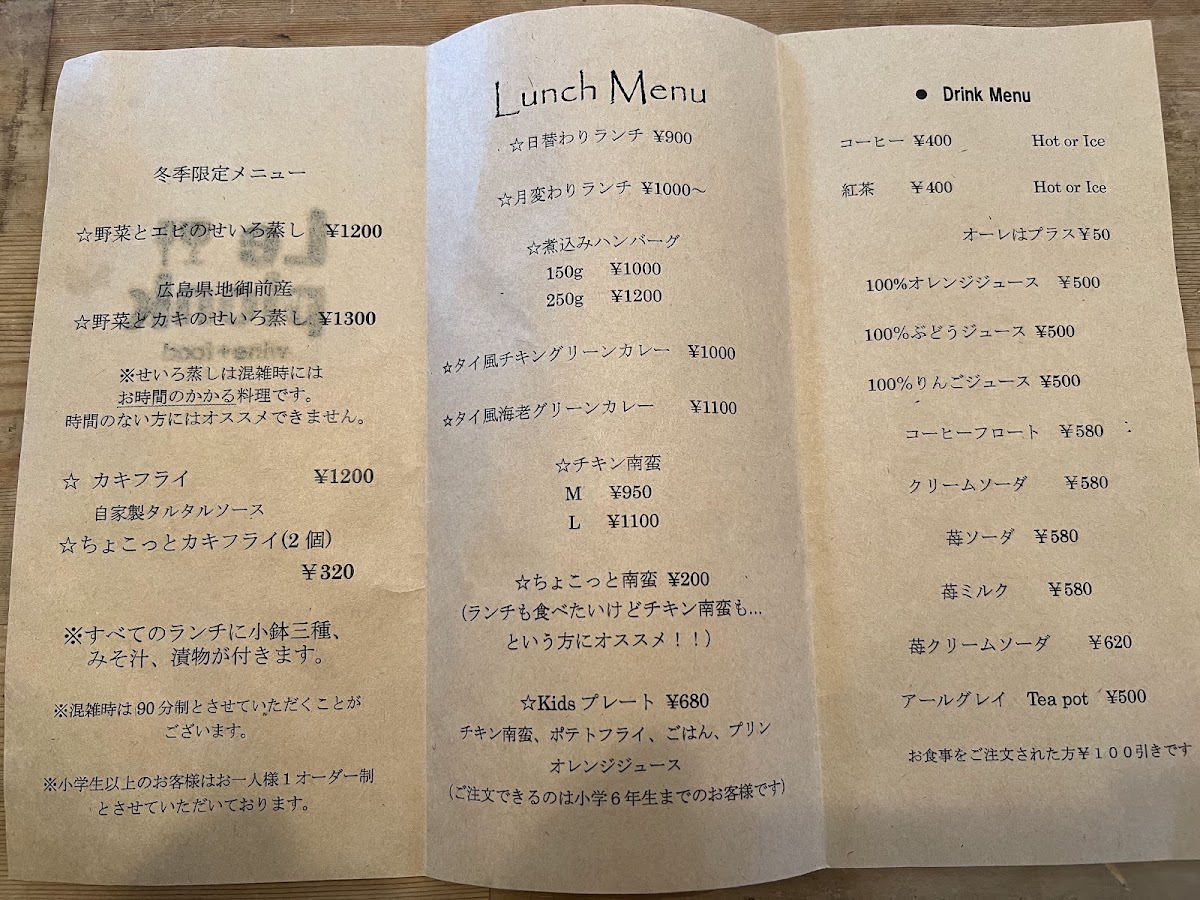 冬季限定メニュー
☆野菜とエビのせいろ蒸し ¥1200
広島県地御前産
☆野菜とカキのせいろ蒸し ¥1300
※せいろ蒸しは混雑時には
お時間のかかる料理です。
時間のない方にはオススメできません。
☆ カキフライ ¥1200
自家製タルタルソース
☆ちょこっとカキフライ(2個)
¥320
※すべてのランチに小鉢三種、
みそ汁、漬物が付きます。
※混雑時は90分制とさせていただくことが
ございます。
※小学生以上のお客様はお一人様1オーダー制
とさせていただいております。
Lunch Menu
☆日替わりランチ ¥900
☆月変わりランチ ¥1000～
☆煮込みハンバーグ
150g ¥1000
250g ¥1200
☆タイ風チキングリーンカレー ¥1000
☆タイ風海老グリーンカレー ¥1100
☆チキン南蛮
M ¥950
L ¥1100
☆ちょこっと南蛮 ¥200
(ランチも食べたいけどチキン南蛮も…
という方にオススメ！！)
☆Kidsプレート ¥680
チキン南蛮、ポテトフライ、ごはん、プリン
オレンジジュース
(ご注文できるのは小学6年生までのお客様です)
● Drink Menu
コーヒー ¥400 Hot or Ice
紅茶 ¥400 Hot or Ice
オーレはプラス¥50
100%オレンジジュース ¥500
100%ぶどうジュース ¥500
100%りんごジュース ¥500
コーヒーフロート ¥580
クリームソーダ ¥580
苺ソーダ ¥580
苺ミルク ¥580
苺クリームソーダ ¥620
アールグレイ Tea pot ¥500
お食事をご注文された方¥１００引きです